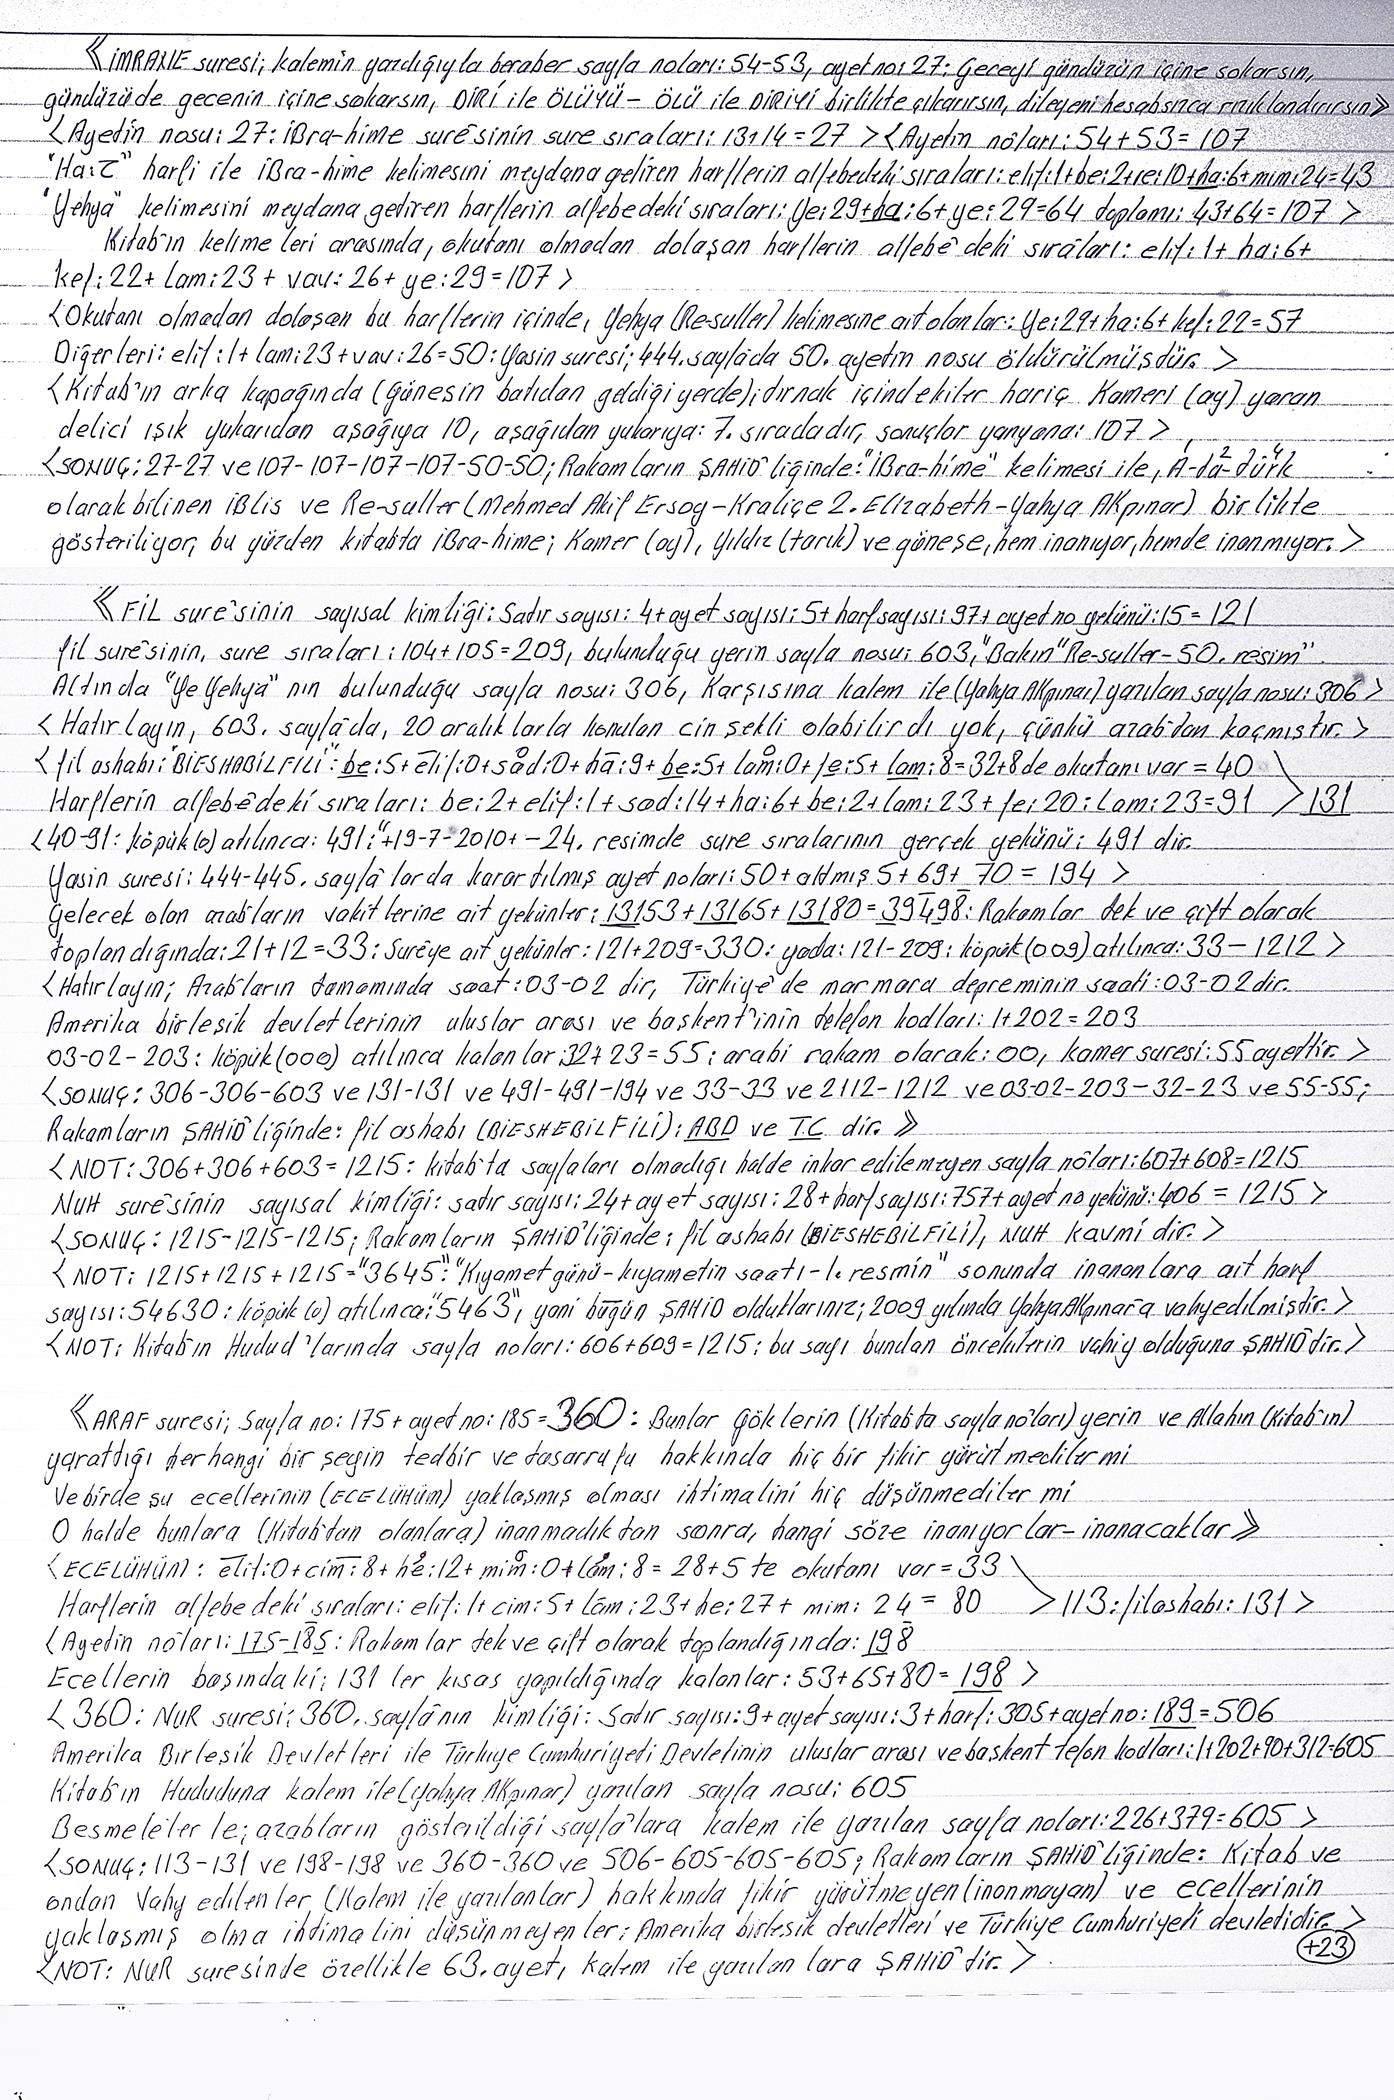 《İMRANE suresi; kalemin yazdığıyla beraber sayfa noları: 54-53, ayet no: 27: Geceyi gündüzün içine sokarsın,
gündüzüde gecenin içine sokarsın, DİRİ ile ÖLÜYÜ – ÖLÜ ile DİRİYİ birlikte çıkarırsın, dileyeni hesabsızca rızıklandırırsın》
<Ayetin nosu: 27: İBra-hime surêsinin sure sıraları: 13+14=27 > <Ayetin nôları: 54+53=107
"Ha:ح" harfi ile İBra-hime kelimesini meydana getiren harflerin alfebedeki sıraları: elif:1+be:2+re:10+ha:6+mim:24=43
"Yehya" kelimesini meydana getiren harflerin alfebedeki sıraları: Ye:29+ha:6+ye:29=64 toplamı: 43+64=107 >
Kitab'ın kelimeleri arasında, okutanı olmadan dolaşan harflerin alfebê deki sırâları: elif:1+ ha:6+
kef:22+ Lam:23 + vav: 26+ ye:29=107 >
<Okutanı olmadan dolaşan bu harflerin içinde, Yehya (Re-suller) kelimesine ait olanlar: Ye:29+ha:6+kef:22=57
Diğerleri: elif:1+lam:23+vav:26=50: Yasin suresi; 444. sayfada 50. ayetin nosu öldürülmüştür. >
<Kitab'ın arka kapağında (güneşin batıdan geldiği yerde); dırnak içindekiler hariç Kameri (ay) yaran
delici ışık yukarıdan aşağıya 10, aşağıdan yukarıya: 7. sıradadır, sonuçlar yanyana: 107 >
<SONUÇ: 27-27 ve 107-107-107-107-50-50; Rakamların ŞAHİD'liğinde: "İBra-hime" kelimesi ile, A-da-dürk
olarak bilinen İBlis ve Re-suller (Mehmed Akif Ersoy-Kraliçe 2. Elizabeth-Yahya AKpınar) birlikte
gösteriliyor, bu yüzden kitabta İBra-hime; Kamer (ay), Yıldız (tarık) ve güneşe, hem inanıyor, hemde inanmıyor. >
《FİL surê'sinin sayısal kimliği: Satır sayısı: 4+ayet sayısı: 5+harf sayısı: 97+ ayet no yekünü: 15= 121
fil surê'sinin, sure sıraları: 104+105=209, bulunduğu yerin sayfa nosu: 603, "Bakın" Re-suller-50. resim".
Altında "Ye Yehya" nın bulunduğu sayfa nosu: 306, Karşısına kalem ile (Yahya AKpınar) yazılan sayfa nosu: 306 >
<Hatırlayın, 603. sayfâda, 20 aralıklarla konulan cin şekli olabilirdi yok, çünkü arab'dan kaçmıştır. >
<fil ashabı: "BİESHABİLFİLİ": be:5+elif:0+såd:0+hā:9+be:5+låm:0+fe:5+lam:8=32+8 de okutanı var = 40
Harflerin alfebêdeki sıraları: be:2+elif:1+sad:14+ha:6+be:2+lam:23+fe:20:Lam:23=91 > 131
<40-91: köpük(0) atılınca: 491: "+19-7-2010+-24. resimde sure sıralarının gerçek yekünü: 491 dir.
Yasin suresi: 444-445. sayfâ larda karartılmış ayet noları: 50+altmış 5+69+ 70 = 194 >
Gelecek olan arab'ların vakitlerine ait yekünler: 13153+13165+13180=39498: Rakamlar tek ve çift olarak
toplandığında: 21+12=33: Surêye ait yekünler: 121+209=330: yada: 121-209: köpük(009) atılınca: 33 – 1212 >
<Hatırlayın; Arab'ların tamamında saat: 03-02 dir, Türkiye'de marmara depreminin saati: 03-02 dir.
Amerika birleşik devletlerinin uluslar arası ve başkent'inin telefon kodları: 1+202=203
03-02-203: köpük(000) atılınca kalanlar: 32+23=55: arabi rakam olarak: 00, kamer suresi: 55 ayettir. >
<SONUÇ: 306-306-603 ve 131-131 ve 491-491-194 ve 33-33 ve 2112-1212 ve 03-02-203-32-23 ve 55-55;
Rakamların ŞAHİD'liğinde: fil ashabı (BİESHEBİLFİLİ): ABD ve T.C dir. 》
<NOT: 306+306+603=1215: kitab'ta sayfaları olmadığı halde inkar edilemeyen sayfa nôları: 607+608=1215
NUH surê'sinin sayısal kimliği: satır sayısı: 24+ayet sayısı: 28+harf sayısı: 757+ayet no yekünü: 406 = 1215 >
<SONUÇ: 1215-1215-1215; Rakamların ŞAHİD'liğinde: fil ashabı (BİESHEBİLFİLİ), NUH kavmi dir. >
<NOT: 1215+1215+1215="3645": "Kıyamet günü-kıyametin saatı-1. resmin" sonunda inananlara ait harf
sayısı: 54630: köpük(0) atılınca: "5463", yani bugün ŞAHİD olduklarınız; 2009 yılında Yahya AKpınar'a vahyedilmiştir. >
<NOT: Kitab'ın Hudud'larında sayfa noları: 606+609=1215: bu sayı bundan öncekilerin vahiy olduğuna ŞAHİD dir. >
《ARAF suresi; Sayfa no: 175+ayet no: 185=360: Bunlar Göklerin (Kitab'ta sayfa nôları) yerin ve Allahın (Kitab'ın)
yarattığı herhangi bir şeyin tedbir ve tasarrufu hakkında hiç bir fikir yürüt mediler mi
Ve birde şu ecellerinin (ECELÜHÜM) yaklaşmış olması ihtimalini hiç düşünmediler mi
O halde bunlara (Kitab'tan olanlara) inanmadıktan sonra, hangi söze inanıyorlar-inanacaklar》
<ECELÜHÜM): elif:0+cim:8+he:12+mim:0+lam:8=28+5 te okutanı var=33
Harflerin alfebedeki sıraları: elif:1+cim:5+Lâm:23+he:27+ mim: 24 = 80 > 113: fil ashabı: 131 >
<Ayetin nôları: 175-185: Rakamlar tek ve çift olarak toplandığında: 198
Ecellerin başındaki; 131 ler kısas yapıldığında kalanlar: 53+65+80= 198 >
<360: NUR suresi: 360. sayfâ'nın kimliği: Satır sayısı: 9+ayet sayısı: 3+harf: 305+ayet no: 189=506
Amerika Birleşik Devletleri ile Türkiye Cumhuriyeti Devletinin uluslar arası ve başkent telfon kodları: 1+202+90+312=605
Kitab'ın Hududuna kalem ile (Yahya AKpınar) yazılan sayfa nosu: 605
Besmeleler le; arabların gösterildiği sayfâ'lara kalem ile yazılan sayfa noları: 226+379=605 >
<SONUÇ: 113-131 ve 198-198 ve 360-360 ve 506-605-605-605; Rakamların ŞAHİD'liğinde: Kitab ve
ondan Vahy edilenler (Kalem ile yazılanlar) hakkında fikir yürütmeyen (inanmayan) ve ecellerinin
yaklaşmış olma ihtimalini düşünmeyenler; Amerika birleşik devletleri ve Türkiye Cumhuriyeti devletidir. >
<NOT: NUR suresinde özellikle 63. ayet, kalem ile yazılan lara ŞAHİD dir. >
+23